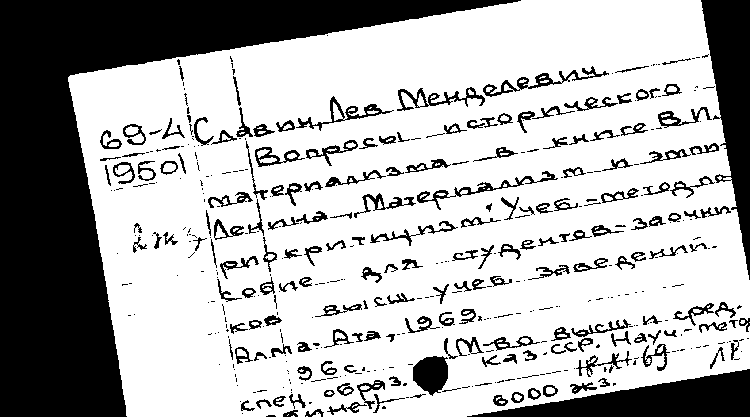 69-4
19501
2 экз
Славин, Лев Менделевич.
Вопросы исторического
материализма в книге В.И.
Ленина „Материализм и эмпи-
риокритицизм". Учеб.-метод. по-
собие для студентов-заочни-
ков высш. учеб. заведений.
Алма-Ата, 1969.
96 с. (М-во высш и сред.
спец. образ. Каз. ССР. Науч.-метод
бинет).
18.XI.69
6000 экз.